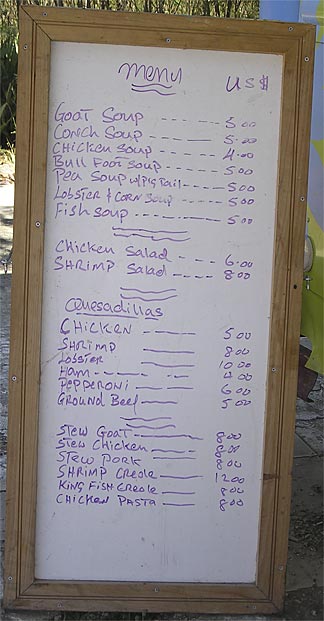 Menu US $
Goat Soup ---- 5.00
Conch Soup ----- 5.00
Chicken Soup ----- 4.00
Bull Foot Soup ----- 5.00
Pea Soup w/pig tail --- 5.00
Lobster & Corn Soup --- 5.00
Fish Soup ---- 5.00
Chicken Salad --- 6.00
Shrimp Salad ---- 8.00
Quesadillas
Chicken ---- 5.00
Shrimp 8.00
Lobster 10.00
Ham ---- 4.00
Pepperoni 6.00
Ground Beef 5.00
Stew Goat 8.00
Stew Chicken 8.00
Stew Pork 8.00
Shrimp Creole 12.00
King Fish Creole 8.00
Chicken Pasta 8.00